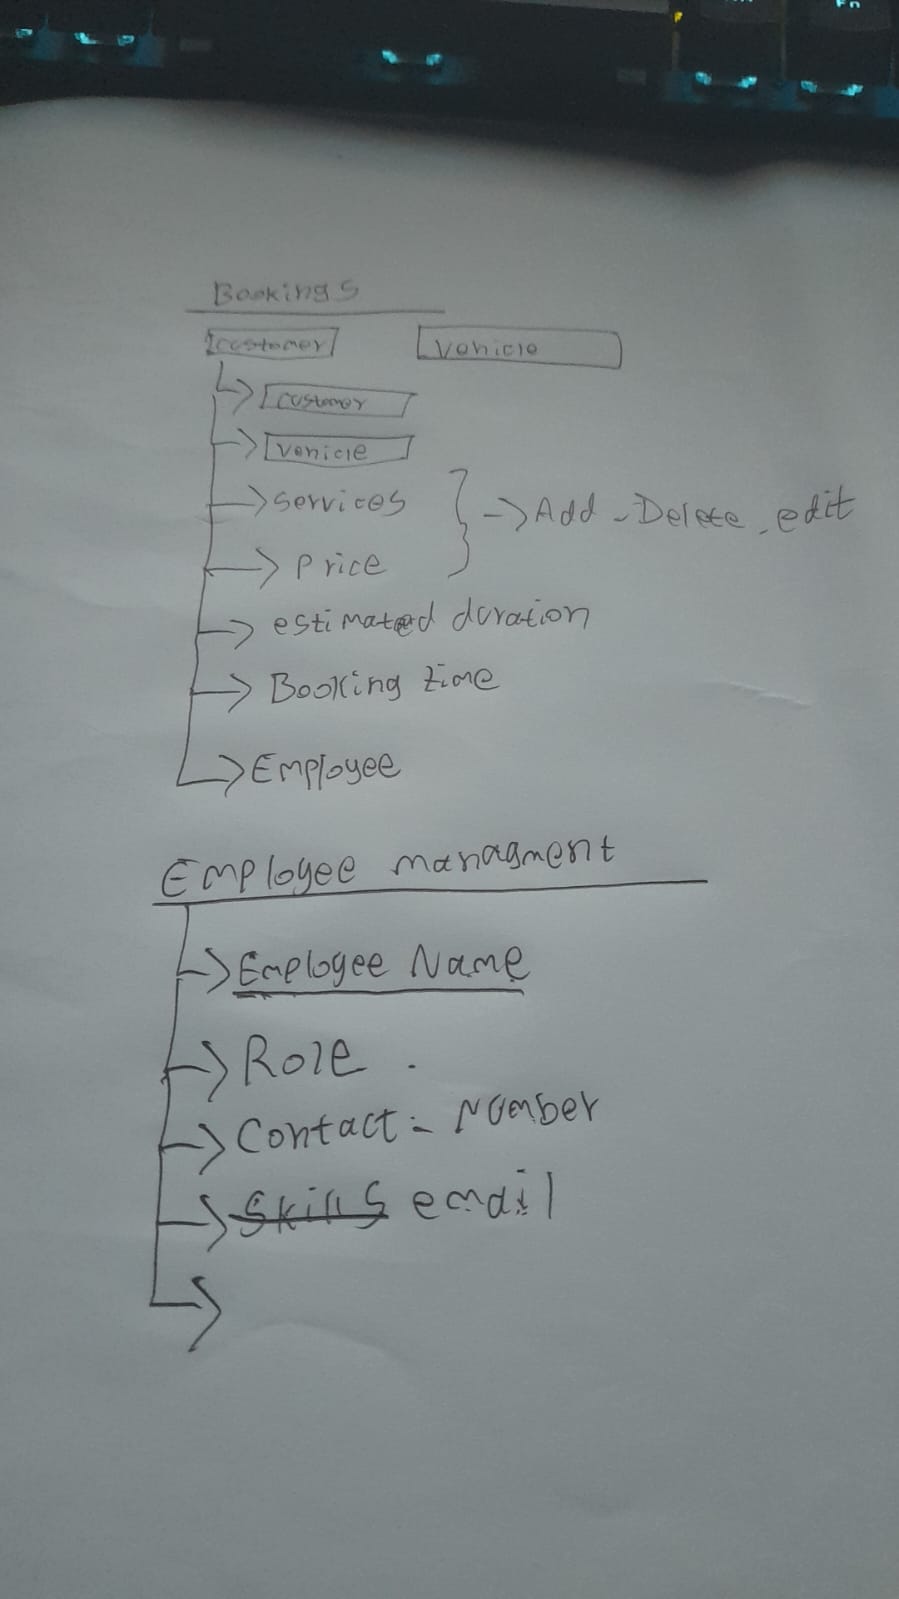 Fn
Bookings
customer
vehicle
customer
vehicle
services
price
Add - Delete - edit
estimated duration
Booking time
Employee
Employee managment
Employee Name
Role .
Contact - Number
Skills email